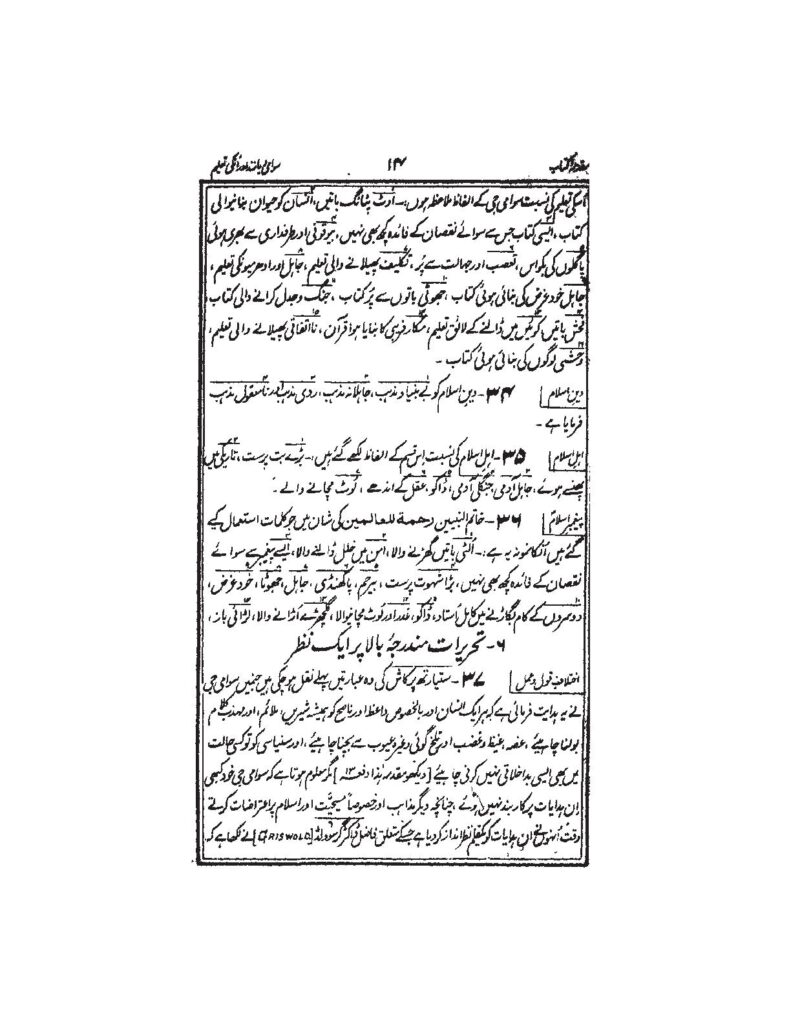 مقدمہ کتاب ۱۴ سوامی دیانند اور اُنکی تعلیم
اُسکی تعلیم کی نسبت سوامی جی کے الفاظ ملاحظہ ہوں:۔ اُوٹ پٹانگ باتیں، انسان کو حیوان بنانیوالی
کتاب، ایسی کتاب جس سے سوائے نقصان کے فائدہ کچھ بھی نہیں، بیوقوفی اور طرفداری سے بھری ہوئی
پاگلوں کی بکواس، تعصب اور جہالت سے پُر، تکلیف پھیلانے والی تعلیم، جاہل اور ادھرمیونکی تعلیم،
جاہل خود غرض کی بنائی ہوئی کتاب، جھوٹی باتوں سے پُر کتاب، جنگ و جدل کرانے والی کتاب
فحش باتیں کوئیں میں ڈالنے کے لائق تعلیم، مکار فریبی کا بنایا ہوا قرآن، نااتفاقی پھیلانے والی تعلیم،
وحشی لوگوں کی بنائی ہوئی کتاب ۔
دینِ اسلام ۳۴۔ دین اسلام کو بے بنیاد مذہب، جاہلانہ مذہب، ردی مذہب اور نامعقول مذہب
فرمایا ہے ۔
اہل اسلام ۳۵۔ اہل اسلام کی نسبت اِس قسم کے الفاظ لکھے گئے ہیں:۔ بڑے بت پرست، تاریکی میں
پھنسے ہوئے، جاہل آدمی، جنگلی آدمی، ڈاکو، عقل کے اندھے، لُوٹ مچانے والے ۔
پیغمبر اسلام ۳۶۔ خاتم النبیین رحمة للعالمین کی شان میں جو کلمات استعمال کیے
گئے ہیں اُنکا نمونہ یہ ہے:۔ اُلٹی باتیں گھڑنے والا، امن میں خلل ڈالنے والا، ایسے پیغمبر سے سوائے
نقصان کے فائدہ کچھ بھی نہیں، بڑا شہوت پرست، بیرحم، پاکھنڈی، جاہل، جھوٹا، خود غرض،
دوسروں کے کام بگاڑنے میں کامل اُستاد، ڈاکو، غدر اور لُوٹ مچانیوالا، گلچھرے اُڑانے والا، لڑائی باز،
۶۔ تحریرات مندرجۂ بالا پر ایک نظر
اختلافِ قول و عمل ۳۷۔ ستیارتھ پرکاش کی وہ عبارتیں پہلے نقل ہو چکی ہیں جنمیں سوامی جی
نے یہ ہدایت فرمائی ہے کہ ہر ایک انسان اور بالخصوص واعظ اور ناصح کو ہمیشہ شیریں، ملائم، اور مہذب کلام
بولنا چاہیئے، غصہ، غیظ و غضب اور تلخ گوئی وغیرہ عیوب سے بچنا چاہیئے، اور سنیاسی کو تو کسی حالت
میں بھی ایسی بداخلاقی نہیں کرنی چاہیئے [دیکھو مقدمہ ہذا دفعہ ۱۳] مگر معلوم ہوتا ہے کہ سوامی جی خود کبھی
اِن ہدایات پر کاربند نہیں ہوئے، چنانچہ دیگر مذاہب اور خصوصاً مسیحیّت اور اسلام پر اعتراضات کرتے
وقت اُنہوں نے ان ہدایات کو یکقلم نظر انداز کر دیا ہے جسکے متعلق فاضل ڈاکٹر گرسوولڈ [GRISWOLD] نے لکھا ہے کہ